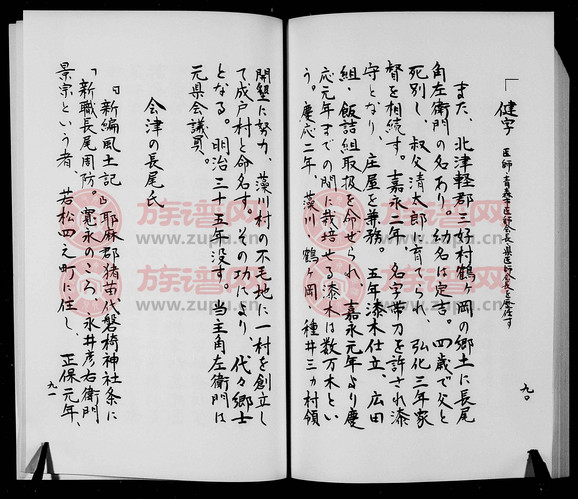 健字 医師・青森市医師会長、県医師会長を歴任す
また、北津軽郡三好村鶴ヶ岡の郷土に長尾
角左衛門の名あり。幼名は定吉。四歳で父と
死別し、叔父清太郎に育てられ、弘化三年家
督を相続す。嘉永二年、名字帯刀を許され漆
守となり、庄屋を兼務。五年漆木仕立、広田
組、飯詰組取扱を命せられ、嘉永元年より慶
応元年までの間に栽培せる漆木は数万本とい
う。慶応二年、藻川、鶴ヶ岡、種井三カ村領
九〇
開墾に努力、藻川村の不毛地に一村を創立し
て成戸村と命名す。その功により、代々郷士
となる。明治三十五年没す。当主角左衛門は
元県会議員。
会津の長尾氏
『新編風土記』耶麻郡猪苗代磐椅神社条に
「新職長尾周防。寛永のころ、永井彦右衛門
景宗という者、若松四之町に住し、正保元年、
九一
族谱网
www.zupu.cn
族谱网
www.zupu.cn
族谱网
www.zupu.cn
族谱网
www.zupu.cn